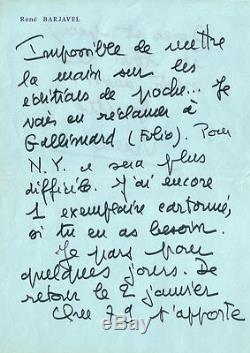 René BARJAVEL
Impossible de mettre
la main sur les
éditions de poche... Je
vais en réclamer à
Gallimard (Folio). Pour
N.Y. ce sera plus
difficile. J'ai encore
1 exemplaire cartonné,
si tu en as besoin.
Je pars pour
quelques jours. De
retour le 2 janvier
t'apporte
worthpoint